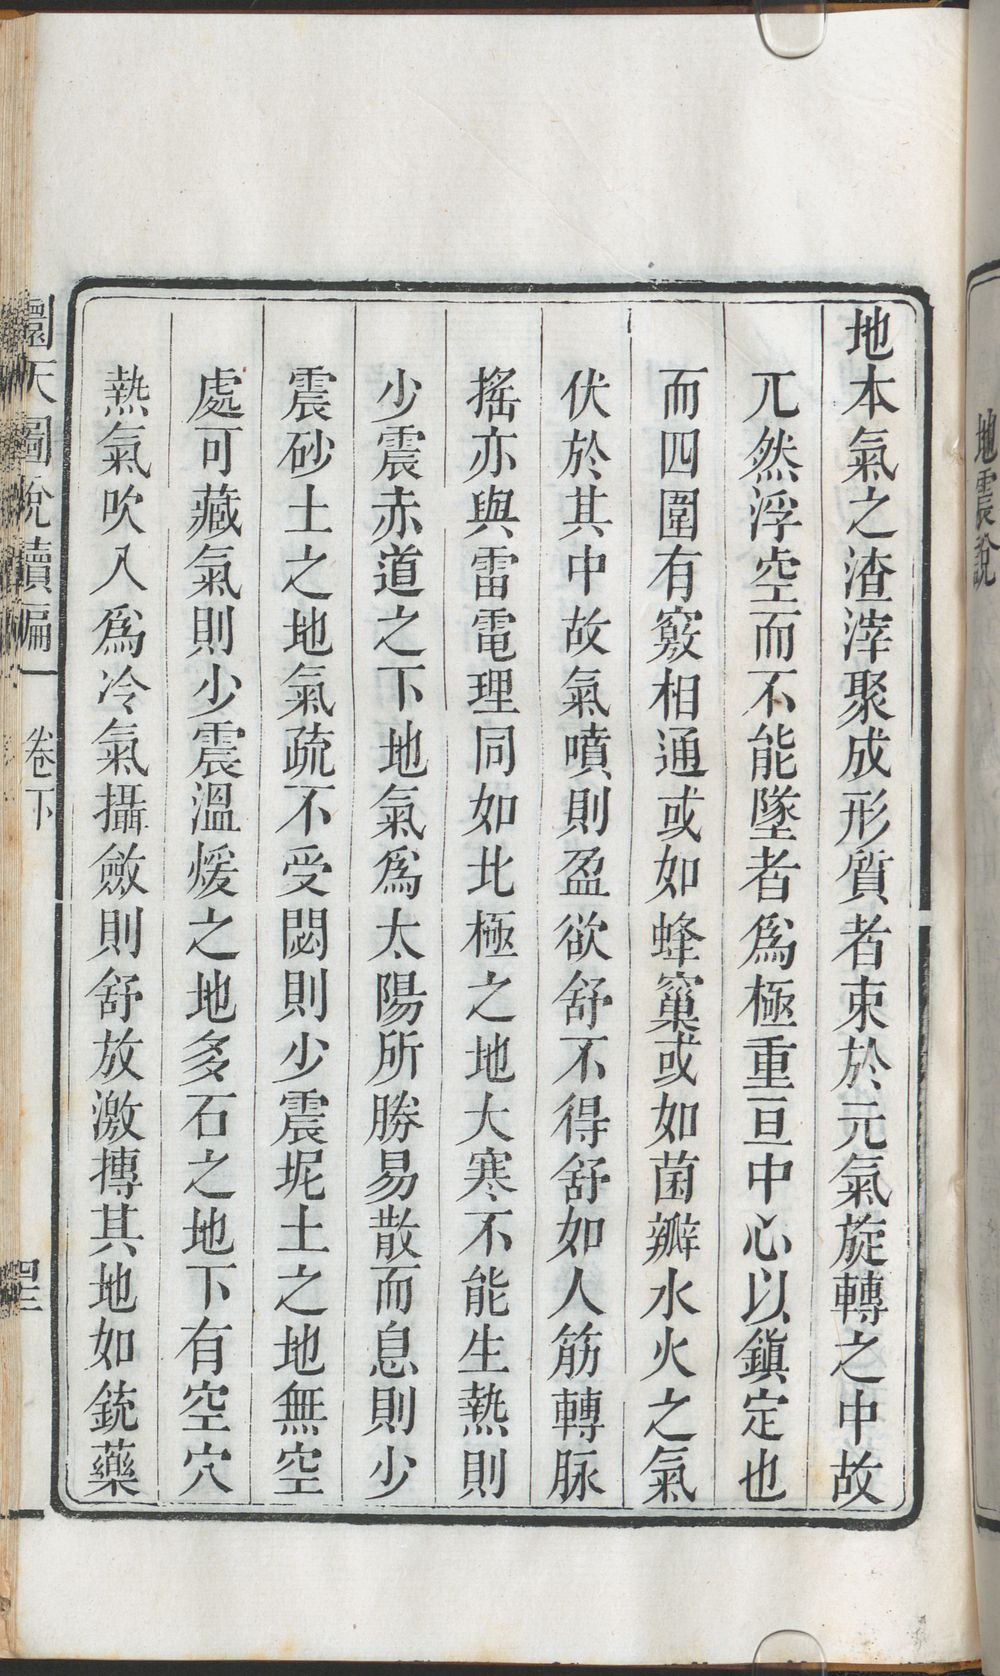 地震說
地本氣之渣滓聚成形質者束於元氣旋轉之中故
兀然浮空而不能墜者為極重亘中心以鎮定也
而四圍有竅相通或如蜂窠或如菌瓣水火之氣
伏於其中故氣噴則盈欲舒不得舒如人筋轉脉
搖亦與雷電理同如北極之地大寒不能生熱則
少震赤道之下地氣為太陽所勝易散而息則少
震砂土之地氣疏不受閟則少震坭土之地無空
處可藏氣則少震溫煖之地多石之地下有空穴
熱氣吹入為冷氣攝斂則舒放激摶其地如銃藥
圜天圖說續編
卷下